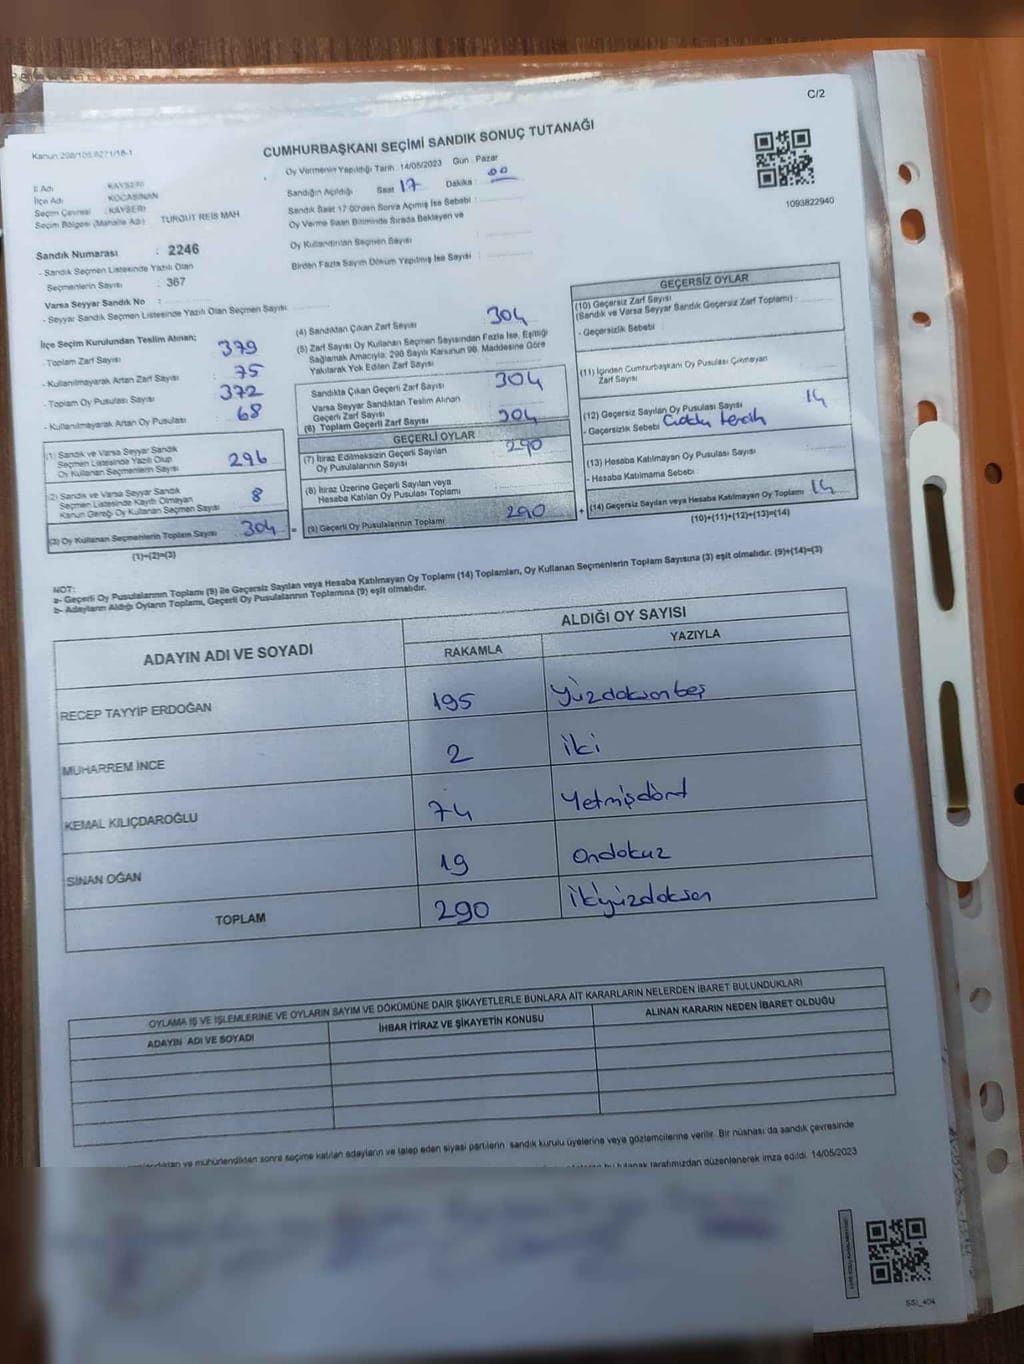 C/2
Kanun 298/105
CUMHURBAŞKANI SEÇİMİ SANDIK SONUÇ TUTANAĞI
Oy Vermenin Yapıldığı Tarih :14/05/2023 Gün : Pazar
Sandığın Açıldığı Saat 17 Dakika : 00
Sandık Saat 17:00'den Sonra Açılmış İse Sebebi :
Oy Verme Saati Bitiminde Sırada Bekleyen ve
Oy Kullandırılan Seçmen Sayısı
Birden Fazla Sayım Döküm Yapılmış İse Sayısı :
1093822940
İl Adı KAYSERİ
İlçe Adı KOCASİNAN
Seçim Çevresi : KAYSERİ
Seçim Bölgesi (Mahalle Adı) TURGUT REİS MAH
Sandık Numarası : 2246
- Sandık Seçmen Listesinde Yazılı Olan
Seçmenlerin Sayısı : 367
Varsa Seyyar Sandık No :
- Seyyar Sandık Seçmen Listesinde Yazılı Olan Seçmen Sayısı:
İlçe Seçim Kurulundan Teslim Alınan;
- Toplam Zarf Sayısı 379
- Kullanılmayarak Artan Zarf Sayısı : 75
- Toplam Oy Pusulası Sayısı : 372
- Kullanılmayarak Artan Oy Pusulası : 68
(1) Sandık ve Varsa Seyyar Sandık
Seçmen Listesinde Yazılı Olup
Oy Kullanan Seçmenlerin Sayısı 296
(2) Sandık ve Varsa Seyyar Sandık
Seçmen Listesinde Kayıtlı Olmayan
Kanun Gereği Oy Kullanan Seçmen Sayısı 8
(3) Oy Kullanan Seçmenlerin Toplam Sayısı 304
(1)+(2)=(3)
(4) Sandıktan Çıkan Zarf Sayısı 304
(5) Zarf Sayısı Oy Kullanan Seçmen Sayısından Fazla İse, Eşitliği
Sağlamak Amacıyla; 298 Sayılı Kanunun 98. Maddesine Göre
Yakılarak Yok Edilen Zarf Sayısı
Sandıkta Çıkan Geçerli Zarf Sayısı 304
Varsa Seyyar Sandıktan Teslim Alınan
Geçerli Zarf Sayısı
(6) Toplam Geçerli Zarf Sayısı 304
GEÇERLİ OYLAR
(7) İtiraz Edilmeksizin Geçerli Sayılan
Oy Pusulalarının Sayısı 290
(8) İtiraz Üzerine Geçerli Sayılan veya
Hesaba Katılan Oy Pusulası Toplamı
= (9) Geçerli Oy Pusulalarının Toplamı 290
GEÇERSİZ OYLAR
(10) Geçersiz Zarf Sayısı
(Sandık ve Varsa Seyyar Sandık Geçersiz Zarf Toplamı) :
- Geçersizlik Sebebi :
(11) İçinden Cumhurbaşkanı Oy Pusulası Çıkmayan
Zarf Sayısı
(12) Geçersiz Sayılan Oy Pusulası Sayısı 14
- Geçersizlik Sebebi tercih
(13) Hesaba Katılmayan Oy Pusulası Sayısı
- Hesaba Katılmama Sebebi
+ (14) Geçersiz Sayılan veya Hesaba Katılmayan Oy Toplamı 14
(10)+(11)+(12)+(13)=(14)
NOT:
a- Geçerli Oy Pusulalarının Toplamı (9) ile Geçersiz Sayılan veya Hesaba Katılmayan Oy Toplamı (14) Toplamları, Oy Kullanan Seçmenlerin Toplam Sayısına (3) eşit olmalıdır. (9)+(14)=(3)
b- Adayların Aldığı Oyların Toplamı, Geçerli Oy Pusulalarının Toplamına (9) eşit olmalıdır.
ADAYIN ADI VE SOYADI
ALDIĞI OY SAYISI
RAKAMLA YAZIYLA
RECEP TAYYİP ERDOĞAN 195 Yüzdoksanbeş
MUHARREM İNCE 2 iki
KEMAL KILIÇDAROĞLU 74 Yetmişdört
SİNAN OĞAN 19 Ondokuz
TOPLAM 290 ikiyüzdoksan
OYLAMA İŞ VE İŞLEMLERİNE VE OYLARIN SAYIM VE DÖKÜMÜNE DAİR ŞİKAYETLERLE BUNLARA AİT KARARLARIN NELERDEN İBARET BULUNDUKLARI
ADAYIN ADI VE SOYADI İHBAR İTİRAZ VE ŞİKAYETİN KONUSU ALINAN KARARIN NEDEN İBARET OLDUĞU
ve mühürlendikten sonra seçime katılan adayların ve talep eden siyasi partilerin sandık kurulu üyelerine veya gözlemcilerine verilir. Bir nüshası da sandık çevresinde
bu tutanak tarafımızdan düzenlenerek imza edildi. 14/05/2023